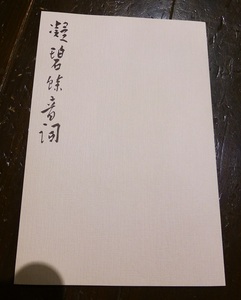 凝碧餘音詞